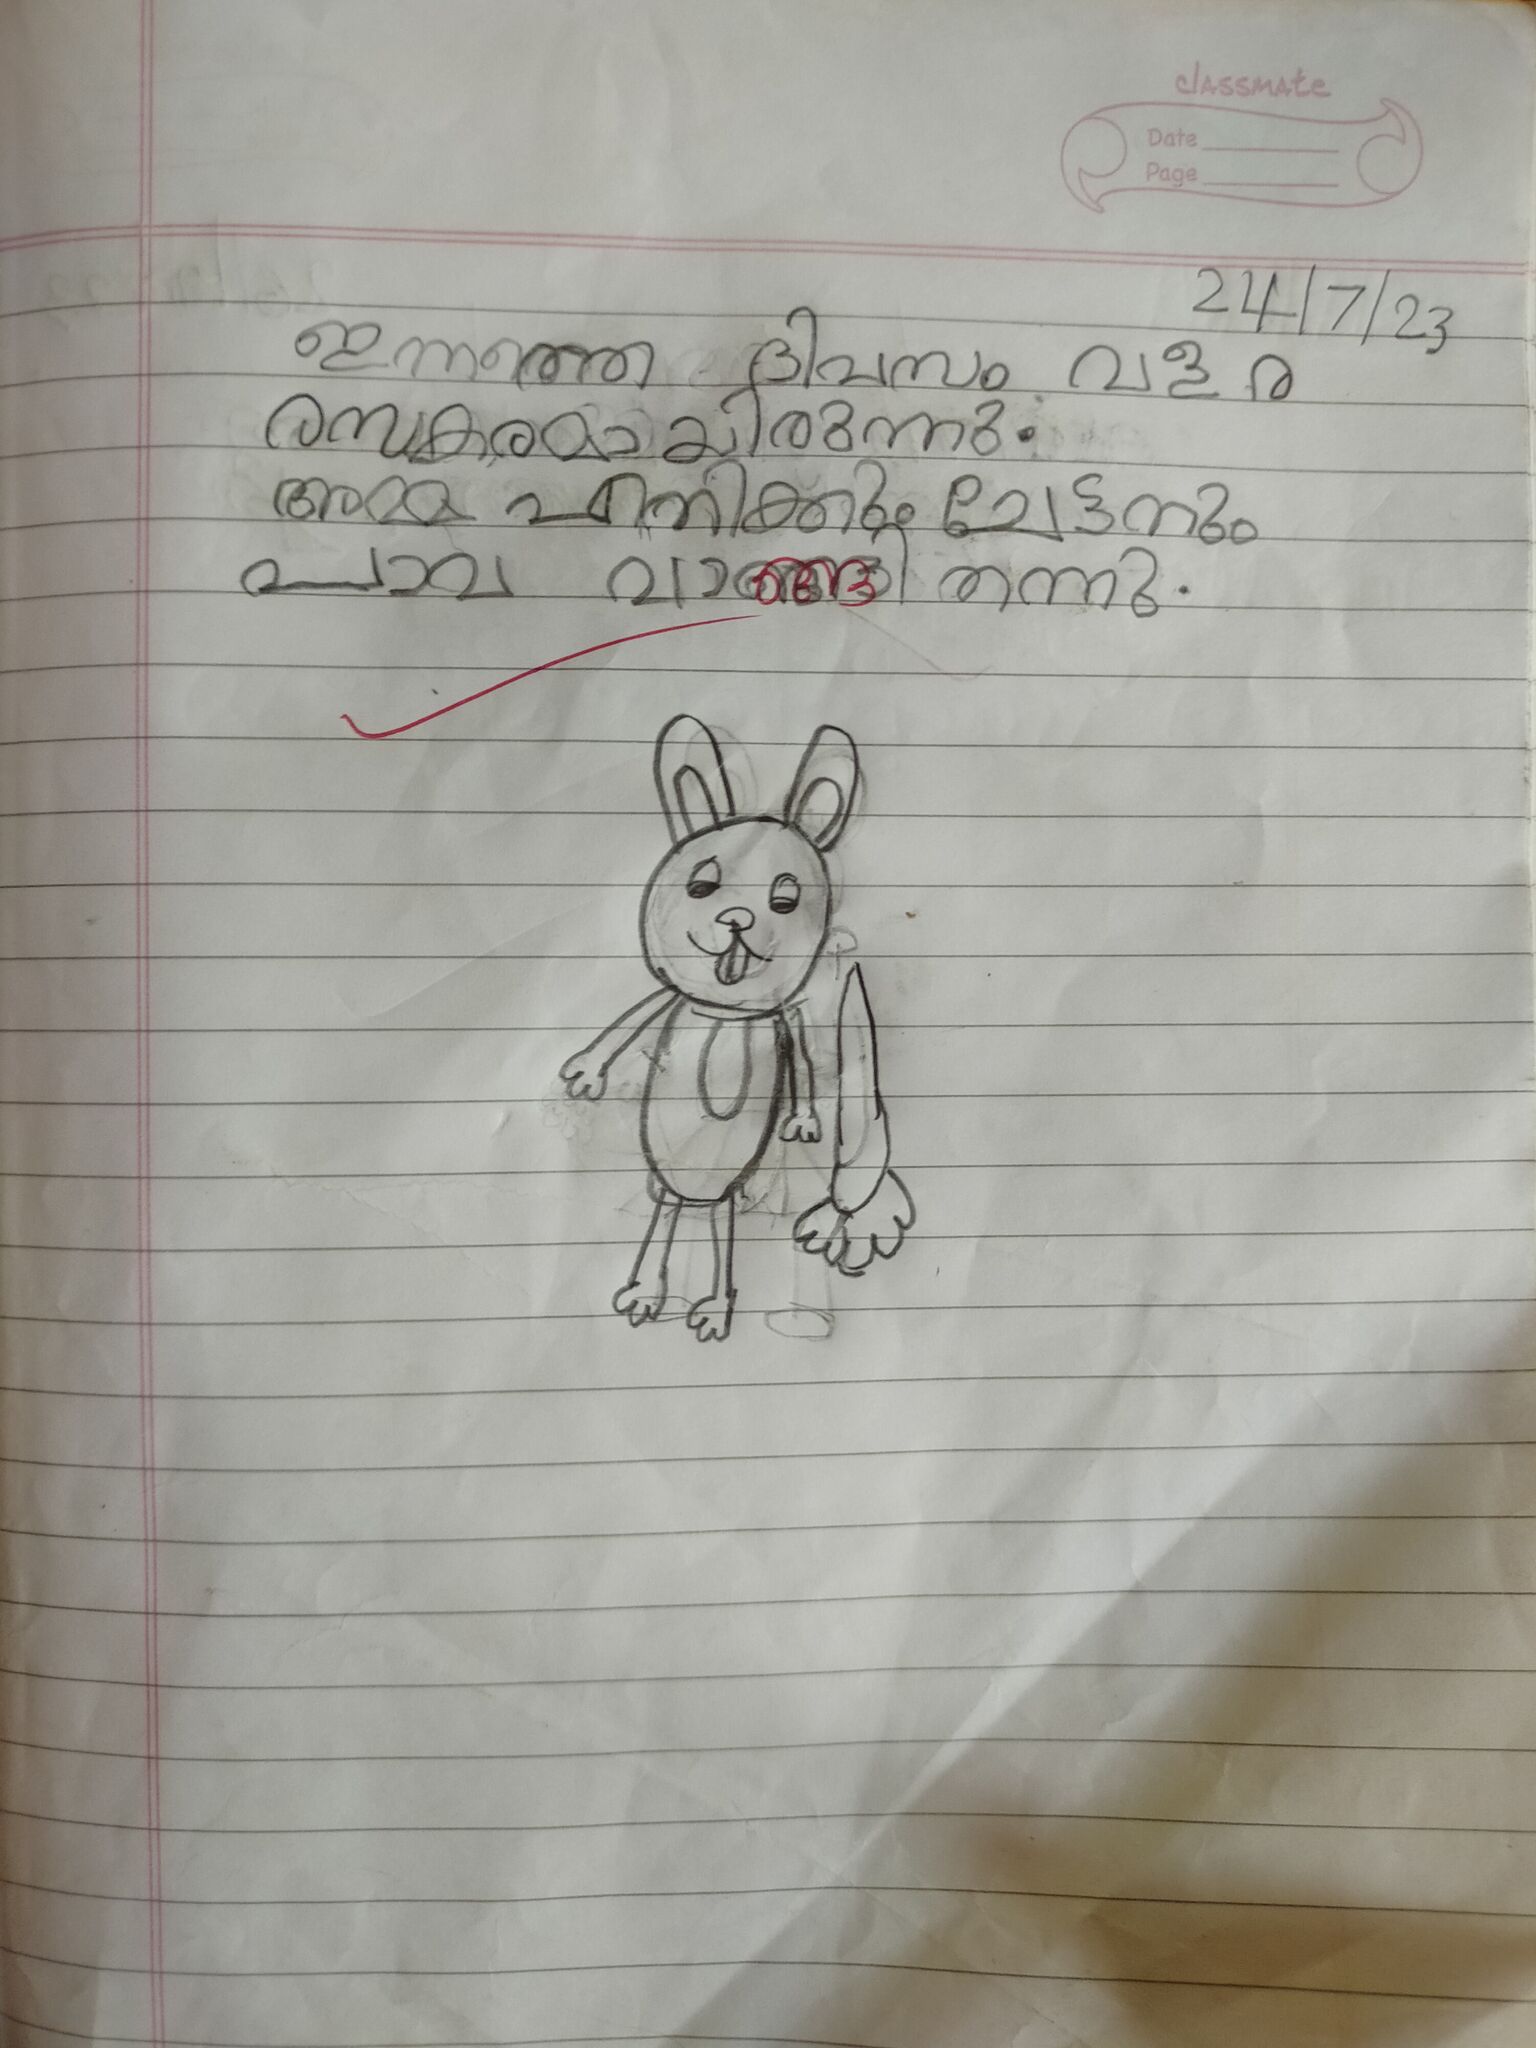 classmate
Date
Page
24/7/23
ഇന്നത്തെ ദിവസം വളരെ
രസകരമായിരുന്നു.
അമ്മ എനിക്കും ചേട്ടനും
പാവ വാങ്ങി തന്നു.